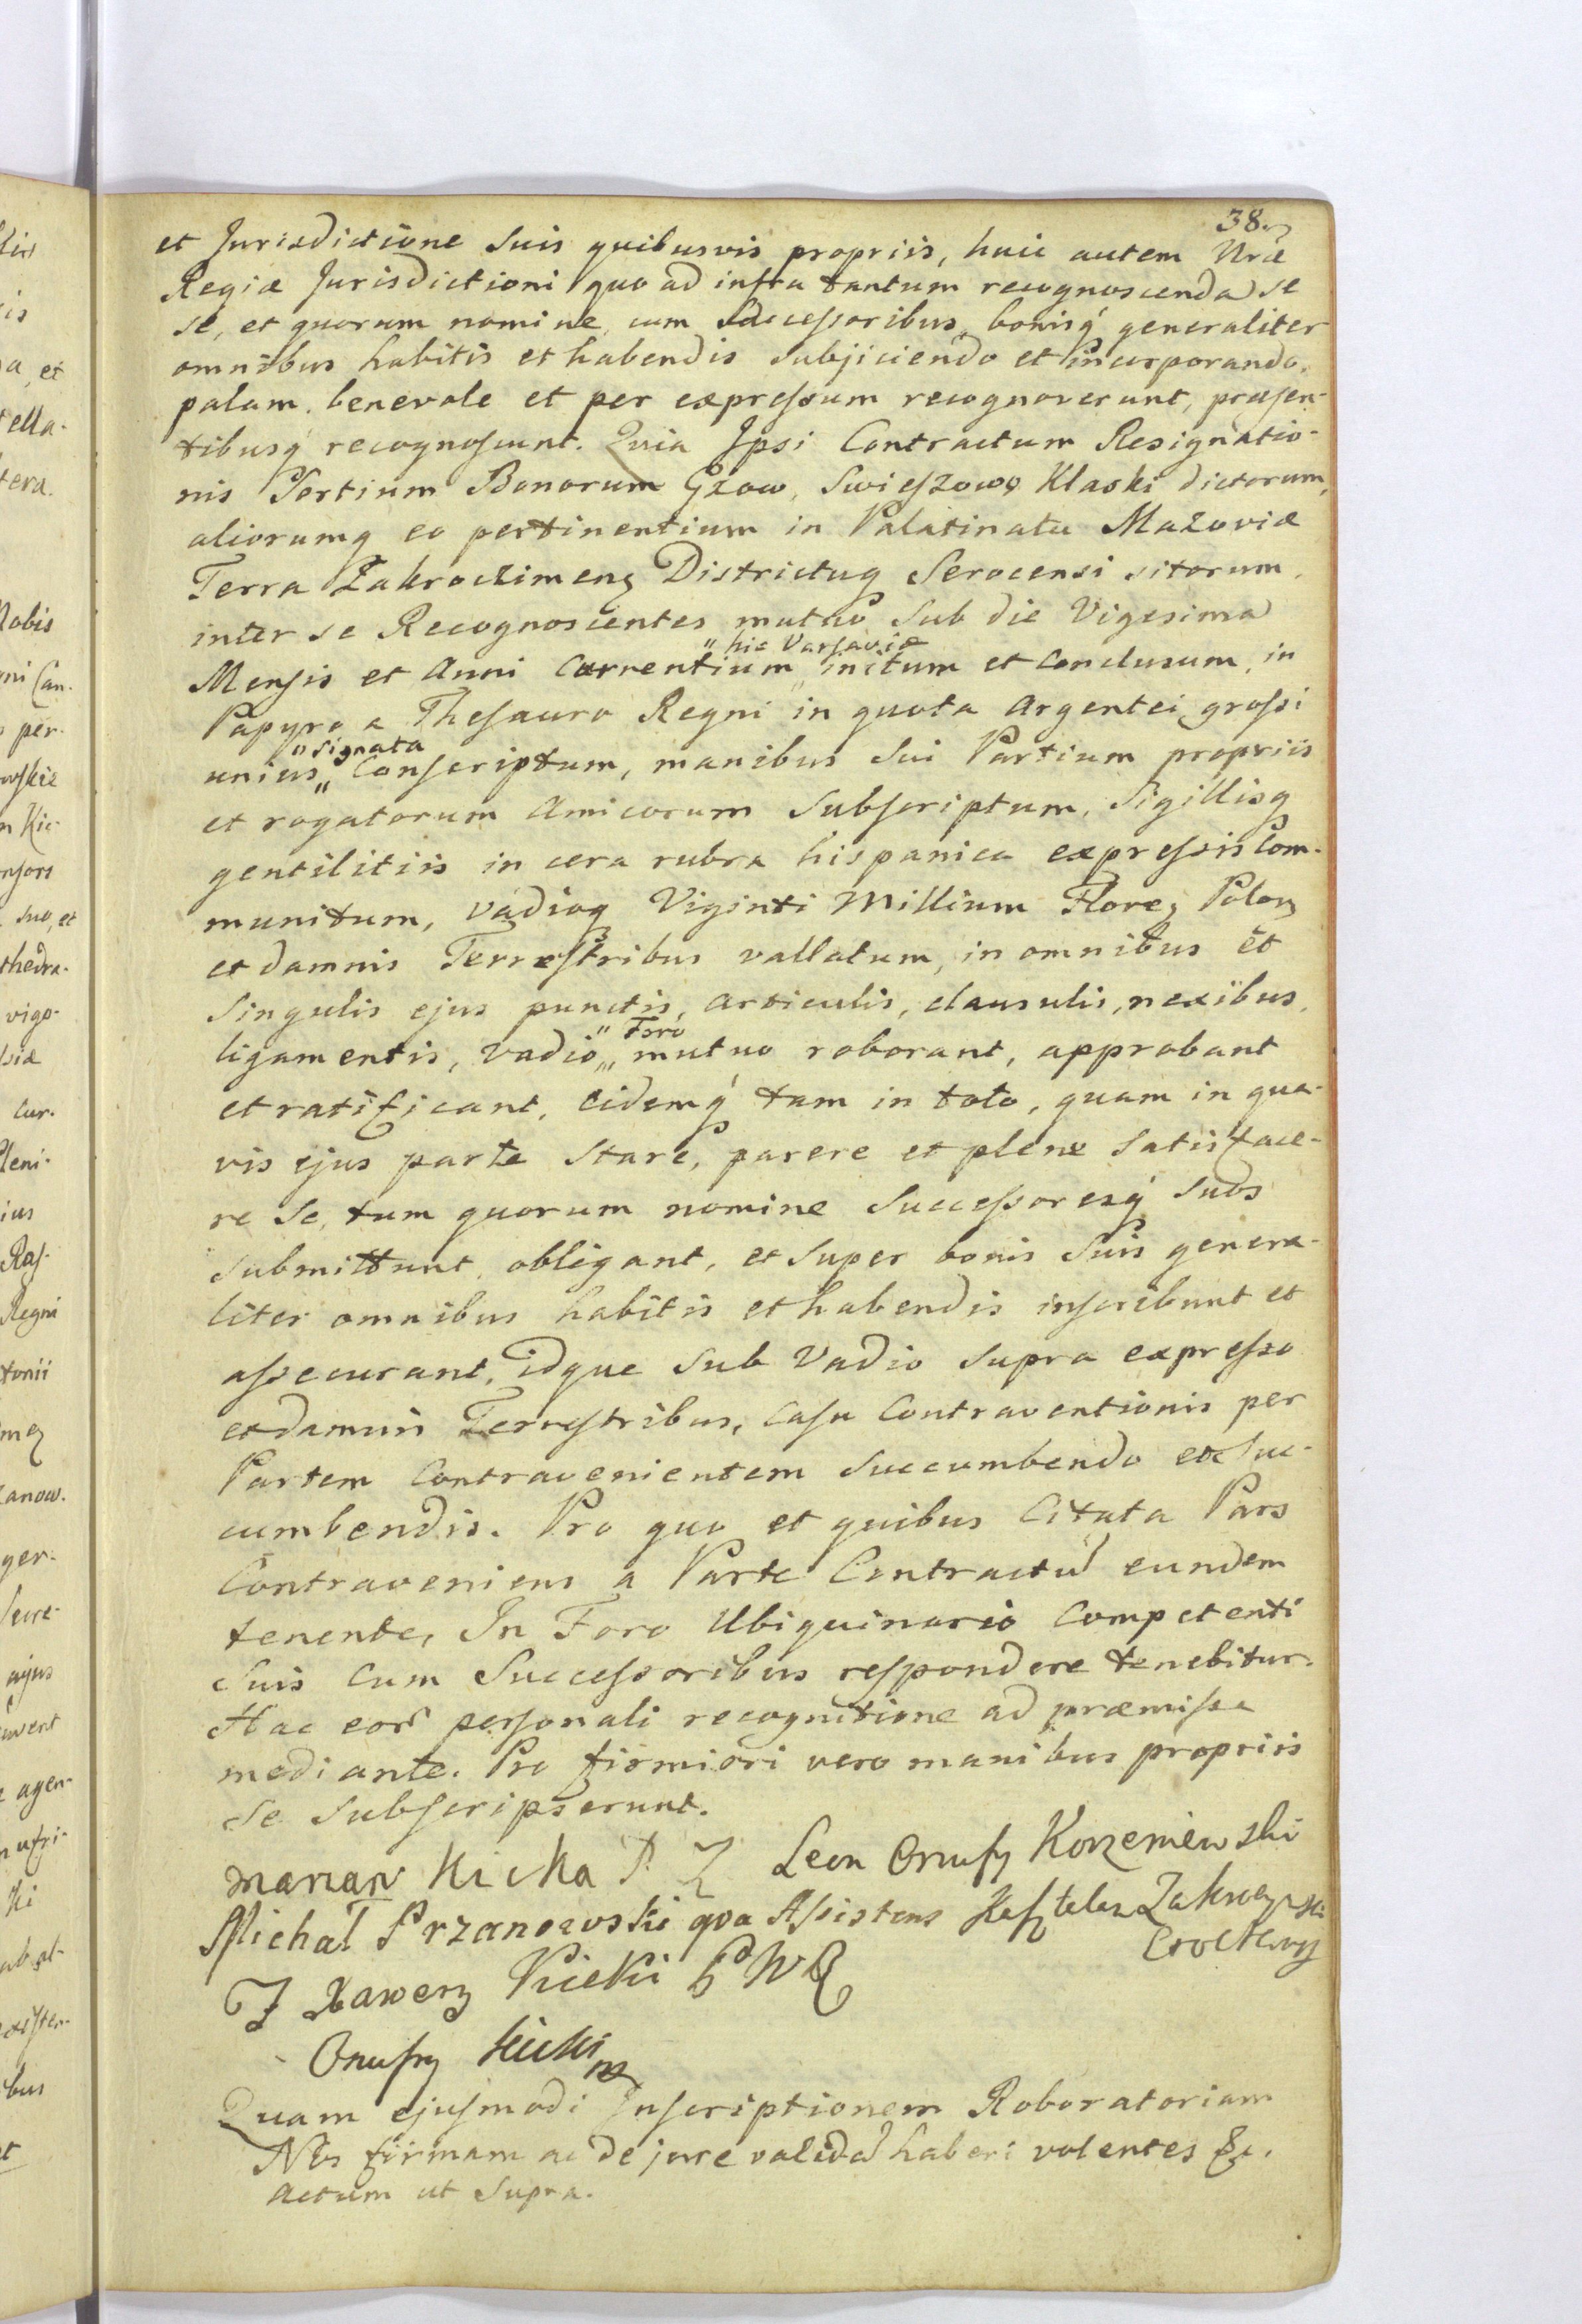 38.
et Jurisdictione Suis quibusvis propriis, huic autem Nræ
Regiæ Jurisdictioni quo ad infra tantum recognoscenda se
se, et quorum nomine, cum Successoribus, bonisq́ generaliter
omnibus habitis et habendis subjiciendo et incorporando,
palam, benevole et per expressum recognoverunt, præsen-
tibusq́ recognoscunt. Quia Ipsi Contractum Resignatio-
nis Sortium Bonorum Gzow, Swieszowo, Klaski dictorum,
aliorumq eo pertinentium in Palatinatu Mazoviæ
Terra Zakroczimenȝ Districtuq Serocensi sitorum,
inter se Recognoscentes mutuo Sub die Vigesima
Mensis et Anni Currentium „hic Varsaviæ„ initum et conclusum, in
Papyro a Thesauro Regni in quota Argentei grossi
unius „signata„ Conscriptum, manibus Sui Partium propriis
et rogatorum Amicorum Subscriptum, Sigillisq
gentilitiis in cera rubra hispanica expressis Com-
munitum, vadioq Viginti Millium Floreȝ Polonȝ
et damnis Terrestribus vallatum, in omnibus et
Singulis ejus punctis, articulis, clausulis, nexibus,
ligamentis, vadio „Foro„ mutuo roborant, approbant
et ratificant, Eidemq́ tam in toto, quam in qua-
vis ejus parte Stare, parere et plene Satisface-
re Se, tum quorum nomine Successoresq́ Suos
Submittunt, obligant, et Super bonis Suis genera-
liter omnibus habitis et habendis inscribunt et
assecurant, idque Sub Vadio Supra expresso
et damnis Terrestribus, Casu Contraventionis per
Partem Contravenientem Succumbendo et Suc-
cumbendis. Pro quo et quibus Citata Pars
Contraveniens a Parte Contractū eundem
tenente, In Foro Ubiquinario Competenti
Suis cum Successoribus respondere tenebitur.
Hac eor̄ personali recognitione ad præmissa
mediante. Pro firmiori vero manibus propriis
Se Subscripserunt.
Marian Kicka P. Z Leon Onufry Korzeniewski
Michał Przanowski qva Assistens Kasztelan Zakroczymski
J Xawery Kicki
Onufry Kicki
Quam ejusmodi Inscriptionem Roboratoriam
Nos firmam ac de jure validā haberi volentes &c.
Actum ut Supra.